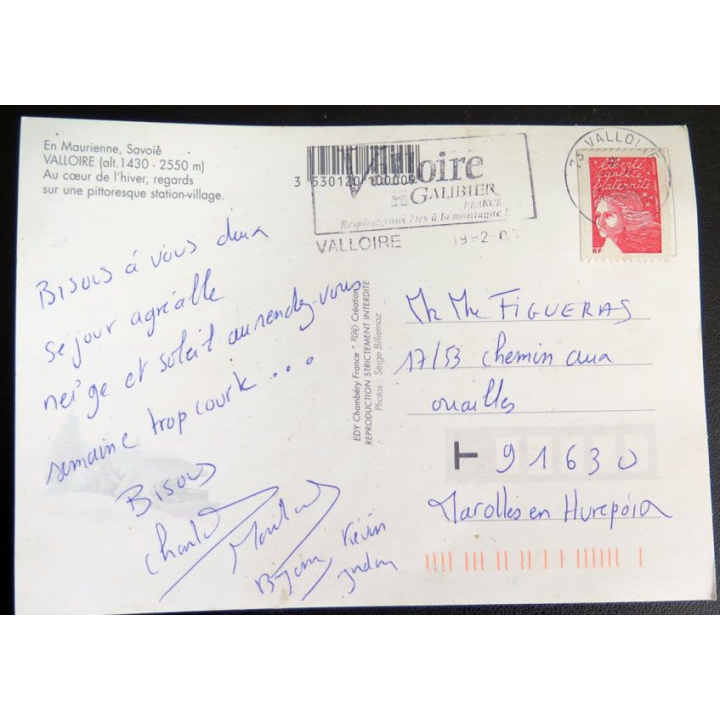 En Maurienne, Savoie
VALLOIRE (alt.1430 - 2550 m)
Au cœur de l'hiver, regards
sur une pittoresque station-village.
3 530120 100009
Valloire
GALIBIER
FRANCE
Respirez, vous êtes à la montagne !
VALLOIRE 19-2-0
73 VALLOI
Liberté
égalité
fraternité
RF
Bisous à vous deux
séjour agréable
neige et soleil au rendez-vous
semaine trop courte ...
Bisous
Kévin
EDY Chambéry France - Création
REPRODUCTION STRICTEMENT INTERDITE
Photos : Serge Billiemaz
FIGUERAS
17/53 chemin aux
ouailles
T 91630
Marolles en Hurepoix